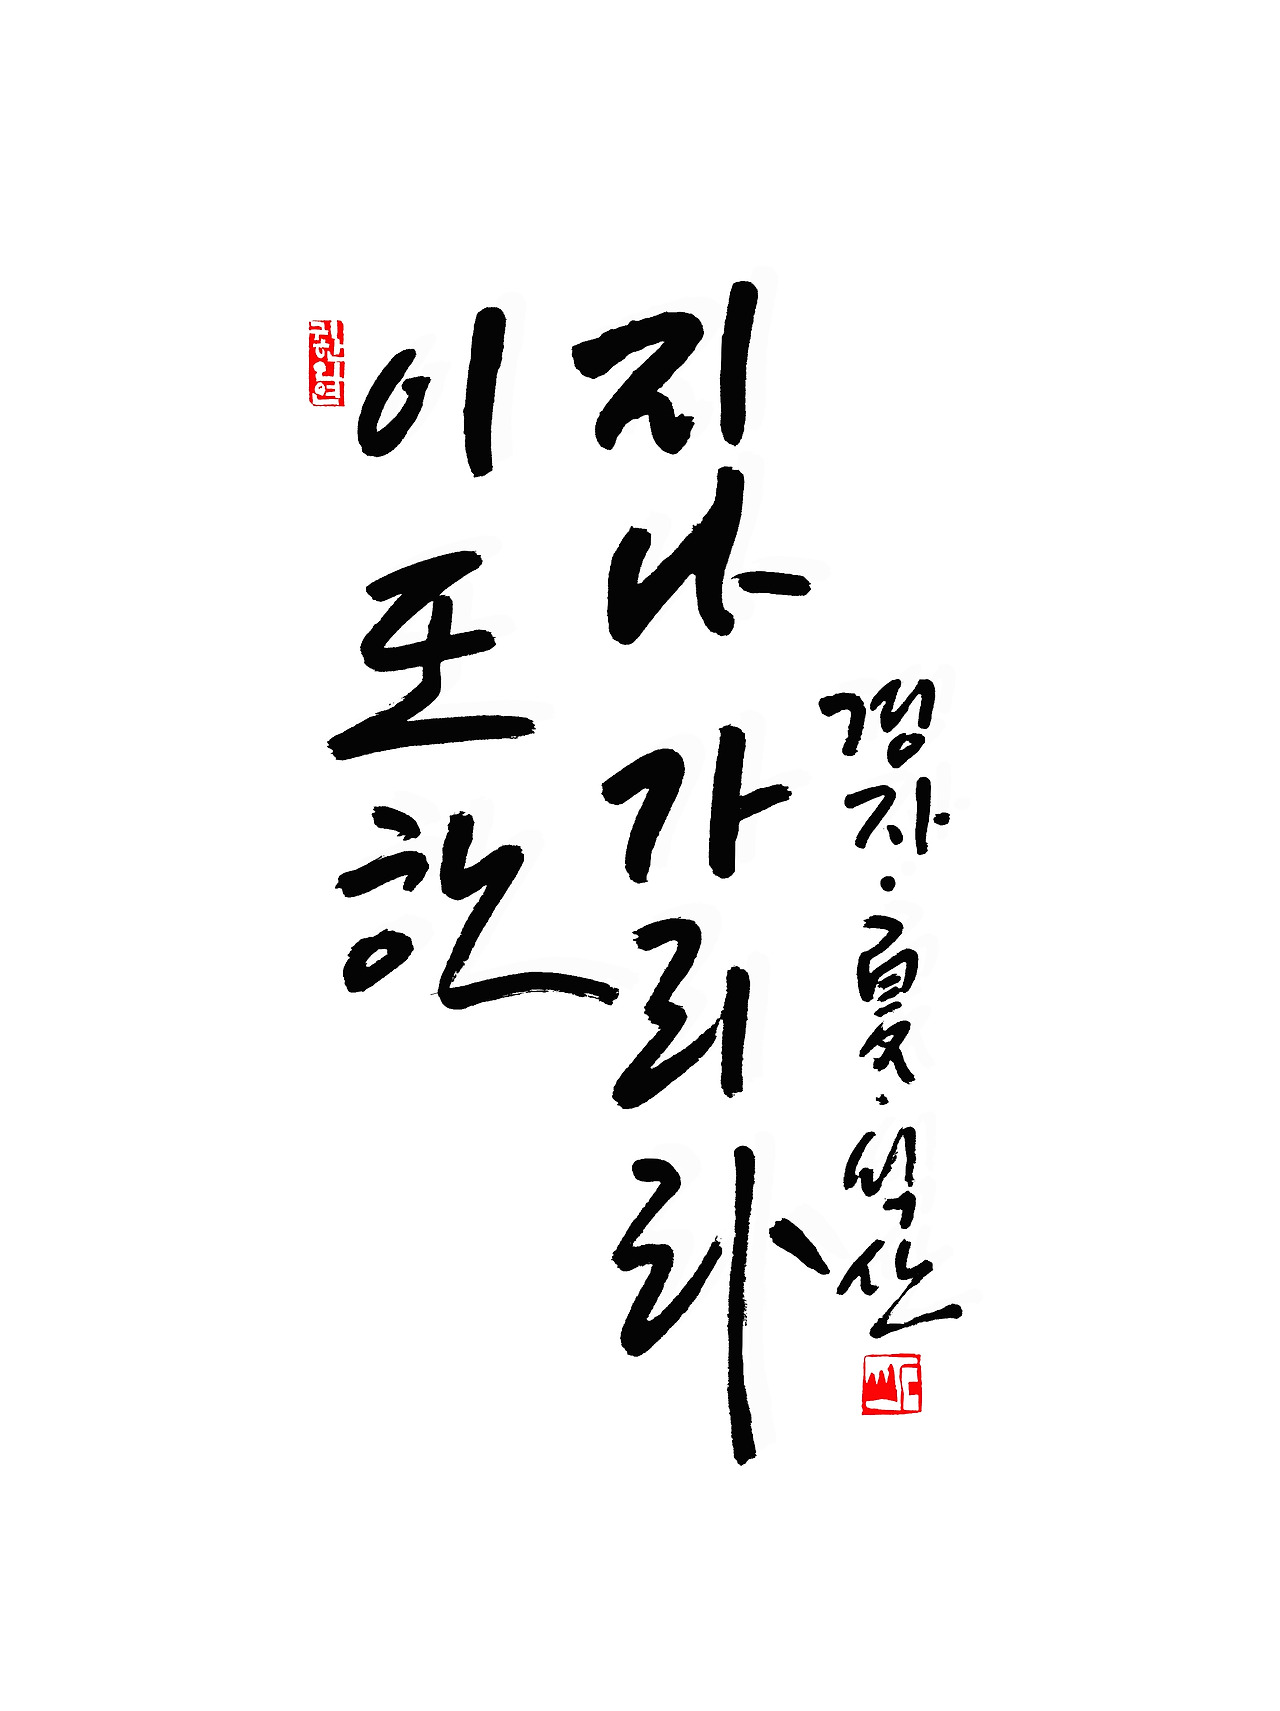 이또한
지나가리라
경자·夏·벽산